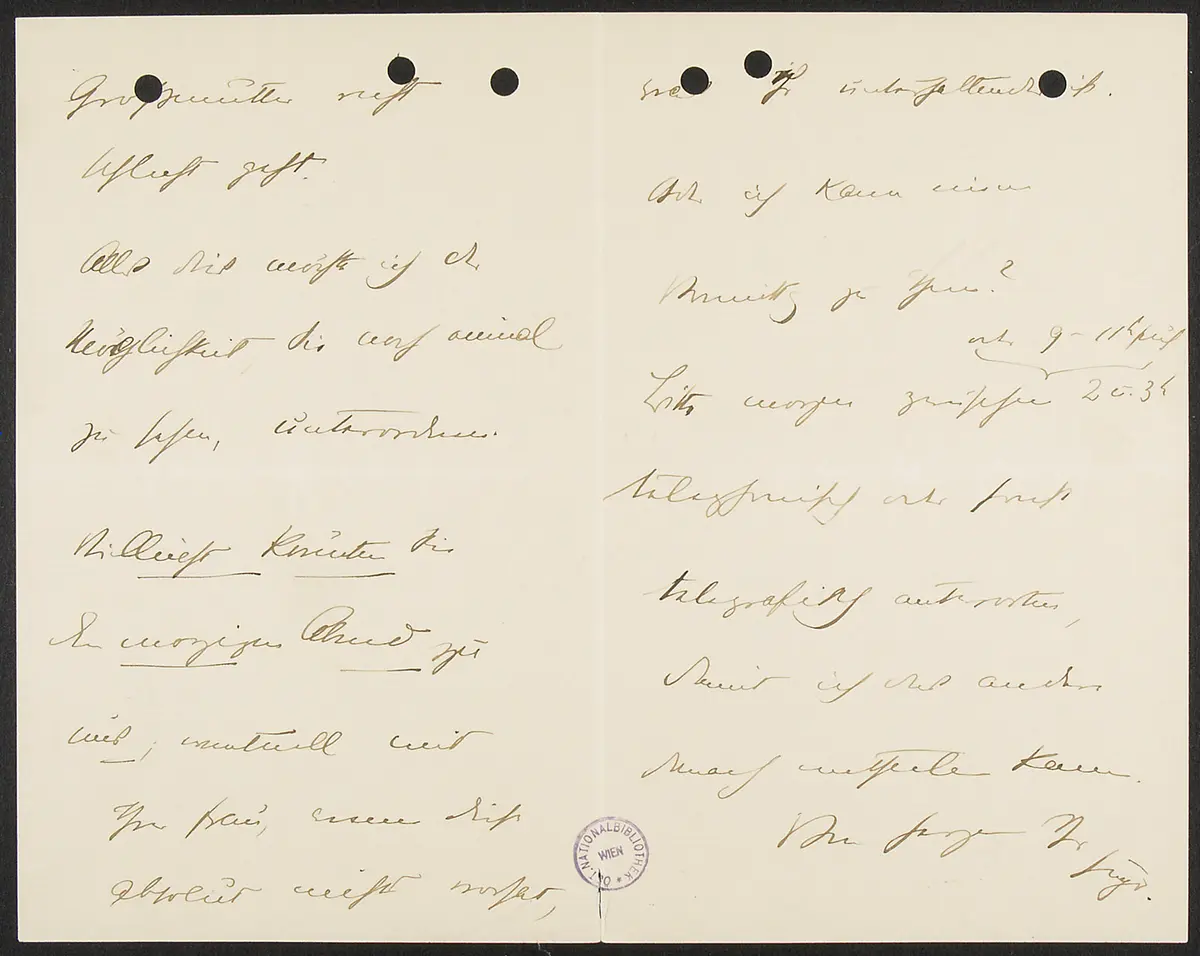 Großmutter nicht
schlecht geht.
Alles dies möchte ich der
Möglichkeit, Sie noch einmal
zu sehen, unterordnen.
Vielleicht könnten Sie
den morgigen Abend zu
uns, eventuell mit
Ihrer Frau, wenn dies
absolut nicht vorhat,
ist.
Oder ich kann
Vormittg zu Ihnen?
oder 9–11h früh
Bitte morgen zwischen 2 u. 3h
telephonisch oder sonst
telegrafisch antworten,
damit ich das andere
danach mitteilen kann.
Von Herzen Ihr
Hugo.
Ö. NATIONALBIBLIOTHEK WIEN